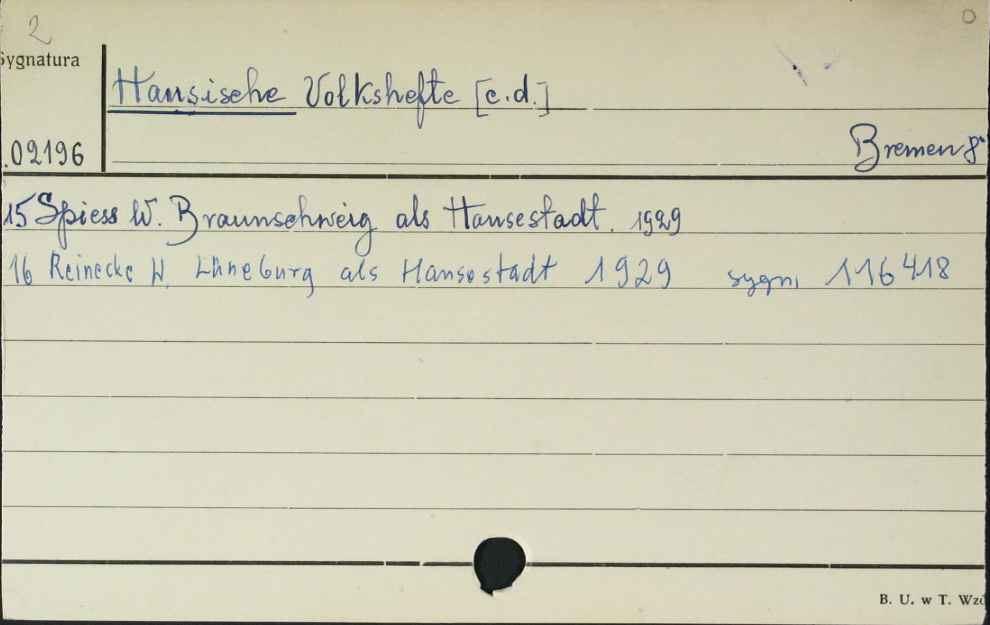 2
Sygnatura
Hansische Volkshefte [c.d.]
.02196
Bremen 8°
15 Spiess W. Braunschweig als Hansestadt. 1929
16 Reinecke W. Lüneburg als Hansestadt 1929 sygn. 116418
B. U. w T. Wzó